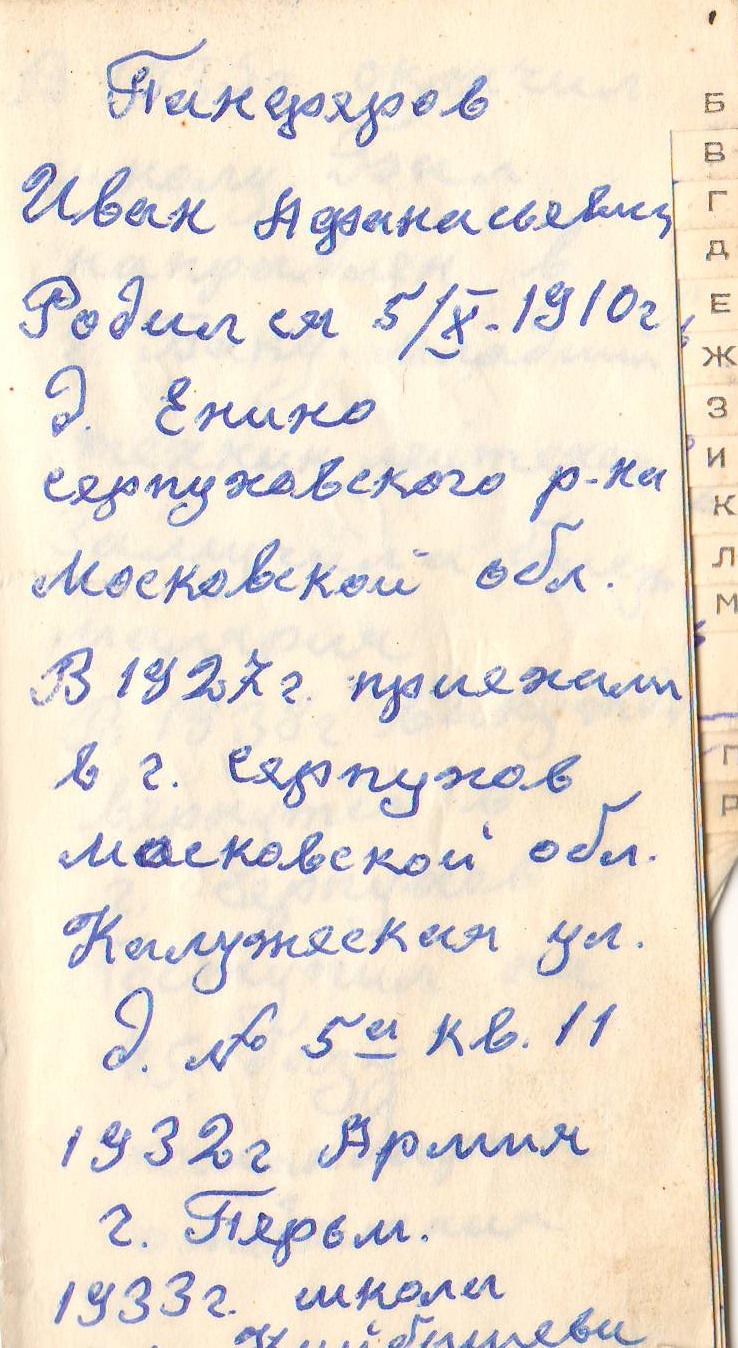 Панфяров
Иван Афанасьевич
Родился 5/X-1910г.
д. Енино
серпуховского р-на
московской обл.
В 1927г. приехали
в г. серпухов
московской обл.
Калужеская ул.
д. № 5а кв. 11
1932г Армия
г. Перьм.
1933г. школа
Куйбышева
Б
В
Г
Д
Е
Ж
З
И
К
Л
М
П
Р